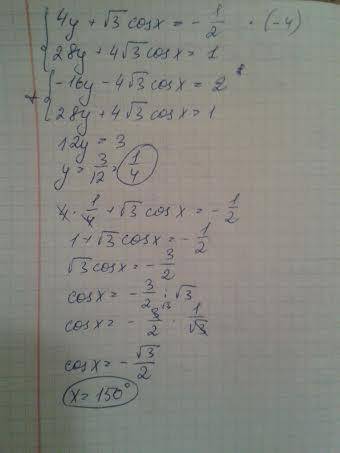 { 4y + √3 cosx = - 1/2 · (-4)
28y + 4√3 cosx = 1
+ { -16y - 4√3 cosx = 2
28y + 4√3 cosx = 1
12y = 3
y = 3/12 = 1/4
4 · 1/4 + √3 cosx = - 1/2
1 + √3 cosx = - 1/2
√3 cosx = - 3/2
cosx = - 3/2 : √3
cosx = - 3/2 · 1/√3
cosx = - √3/2
x = 150°